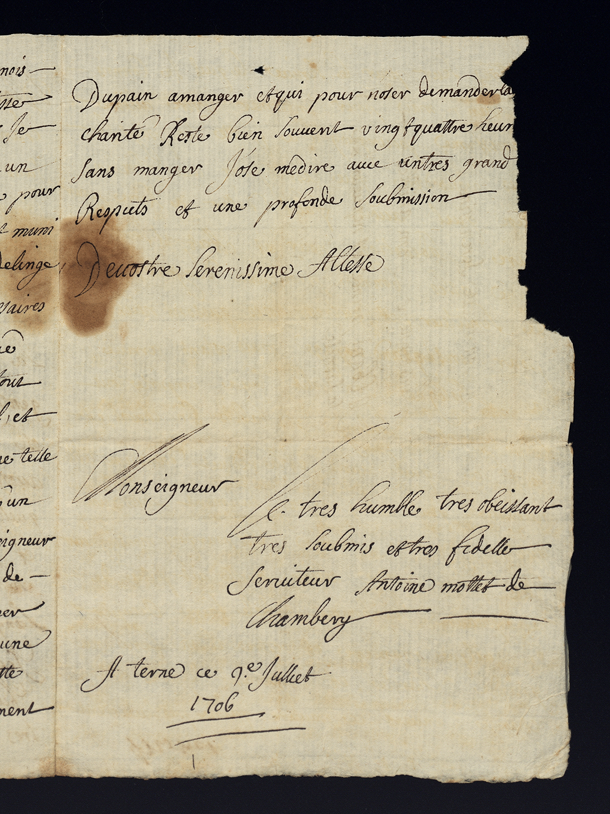 nois
tte
Je
un
pour
t muni
delinge
saires
ce
tout
l, et
ne telle
un
eigneur
de
ner
une
tte
ment
Dupain amanger etqui pour noser demander la
charité Reste bien souvent vingtquattre heur
sans manger J'ose medire avec untres grand
Respects et une profonde Soubmission
Devostre Serenissime Altesse
Monseigneur
Le tres humble tres obeissant
tres Soubmis ettres fidelle
Serviteur Antoine mottet de
Chambery
A terne ce 9.e Julliet
1706